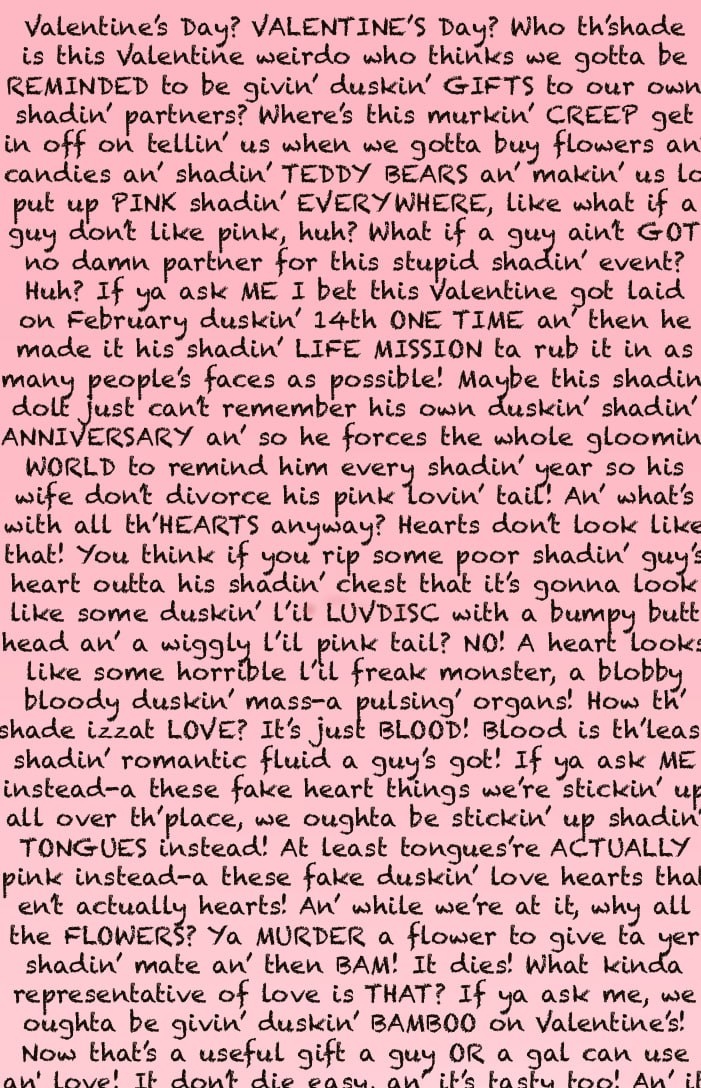 Valentine's Day? VALENTINE'S Day? Who th'shade
is this Valentine weirdo who thinks we gotta be
REMINDED to be givin' duskin' GIFTS to our own
shadin' partners? Where's this murkin' CREEP get
in off on tellin' us when we gotta buy flowers an'
candies an' shadin' TEDDY BEARS an' makin' us lo
put up PINK shadin' EVERYWHERE, like what if a
guy don't like pink, huh? What if a guy ain't GOT
no damn partner for this stupid shadin' event?
Huh? If ya ask ME I bet this Valentine got laid
on February duskin' 14th ONE TIME an' then he
made it his shadin' LIFE MISSION ta rub it in as
many people's faces as possible! Maybe this shadin
dolt just can't remember his own duskin' shadin'
ANNIVERSARY an' so he forces the whole gloomin
WORLD to remind him every shadin' year so his
wife don't divorce his pink lovin' tail! An' what's
with all th'HEARTS anyway? Hearts don't look like
that! You think if you rip some poor shadin' guy's
heart outta his shadin' chest that it's gonna look
like some duskin' l'il LUVDISC with a bumpy butt
head an' a wiggly l'il pink tail? NO! A heart looks
like some horrible l'il freak monster, a blobby
bloody duskin' mass-a pulsing' organs! How th'
shade izzat LOVE? It's just BLOOD! Blood is th'leas
shadin' romantic fluid a guy's got! If ya ask ME
instead-a these fake heart things we're stickin' up
all over th'place, we oughta be stickin' up shadin'
TONGUES instead! At least tongues're ACTUALLY
pink instead-a these fake duskin' love hearts that
en't actually hearts! An' while we're at it, why all
the FLOWERS? Ya MURDER a flower to give ta yer
shadin' mate an' then BAM! It dies! What kinda
representative of love is THAT? If ya ask me, we
oughta be givin' duskin' BAMBOO on Valentine's!
Now that's a useful gift a guy OR a gal can use
an' love! It don't die easy, an' it's tasty too! An' it